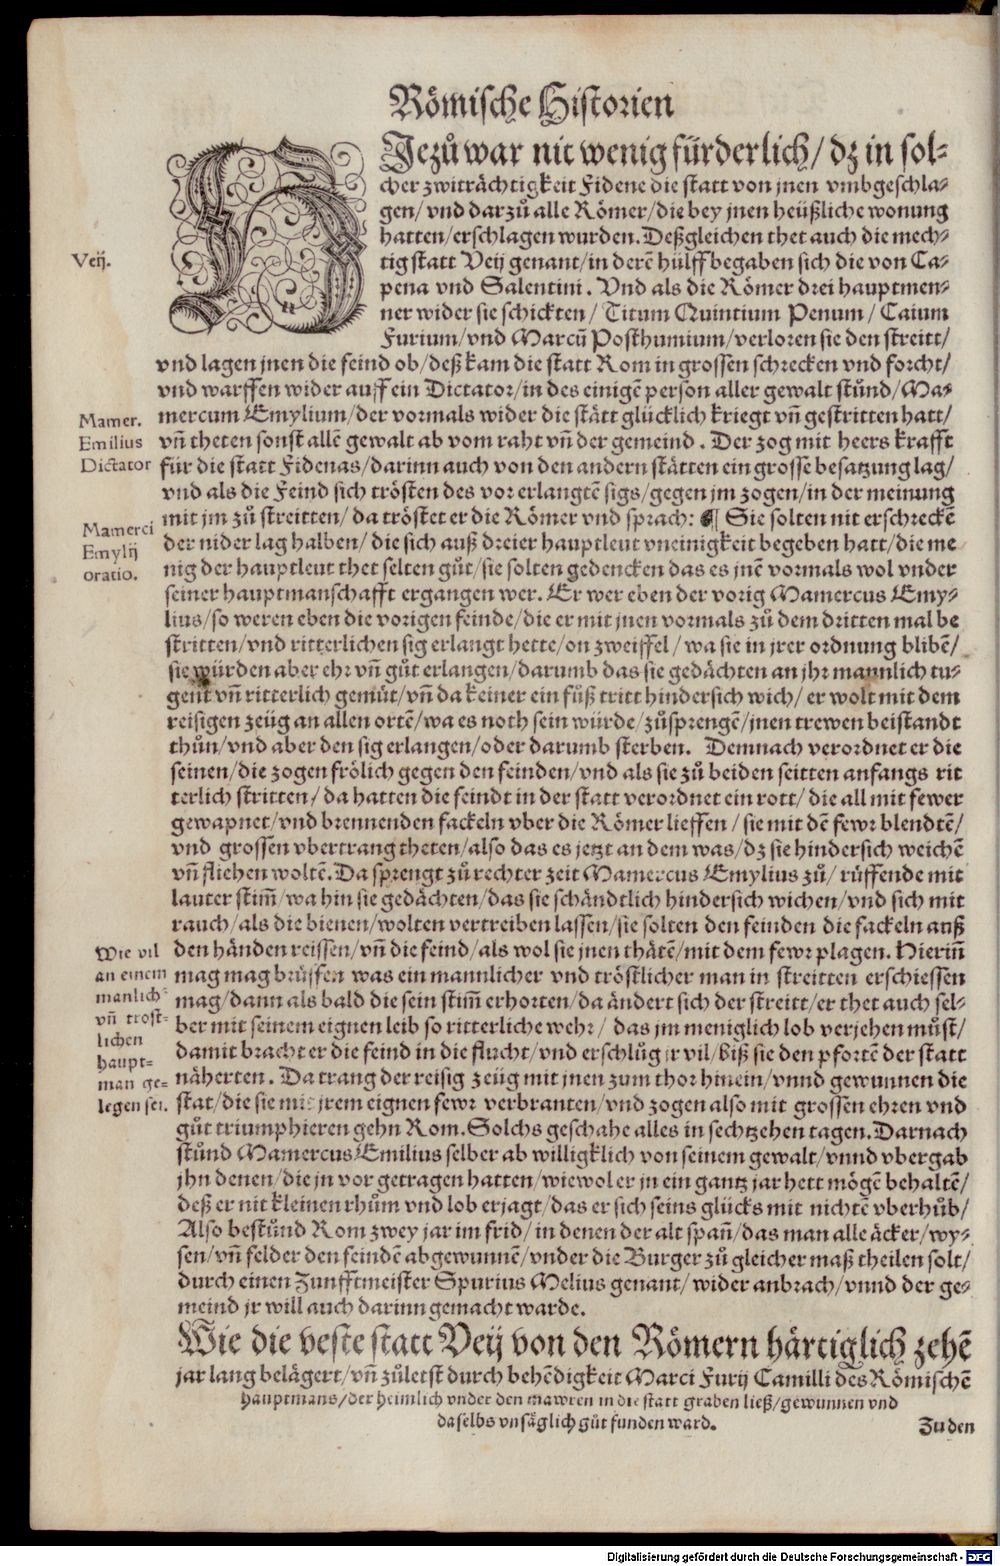 Römische Historien
HJezů war nit wenig fürderlich/ dz in sol-
cher zwiträchtigkeit Fidene die statt von jnen vmbgeschla-
gen/ vnd darzů alle Römer/die bey jnen heüßliche wonung
hatten/erschlagen wurden. Deßgleichen thet auch die mech-
Veij.
tig statt Veij genant/in derē hülff begaben sich die von Ca-
pena vnd Salentini. Vnd als die Römer drei hauptmen-
ner wider sie schickten/ Titum Quintium Penum/ Caium
Furium/vnd Marcū Posthumium/verloren sie den streitt/
vnd lagen jnen die feind ob/deß kam die statt Rom in grossen schrecken vnd forcht/
vnd warffen wider auff ein Dictator/in des einigē person aller gewalt stůnd/Ma-
Mamer.
Emilius
Dictator
mercum Emylium/der vormals wider die stätt glücklich kriegt vñ gestritten hatt/
vñ theten sonst allē gewalt ab vom raht vñ der gemeind. Der zog mit heers krafft
für die statt Fidenas/darinn auch von den andern stätten ein grosse besatzung lag/
vnd als die Feind sich trösten des vor erlangtē sigs/gegen jm zogen/in der meinung
Mamerci
Emylij
oratio.
mit jm zů streitten/ da tröstet er die Römer vnd sprach: ¶ Sie solten nit erschreckē
der nider lag halben/ die sich auß dreier hauptleut vneinigkeit begeben hatt/die me
nig der hauptleut thet selten gůt/sie solten gedencken das es jnē vormals wol vnder
seiner hauptmanschafft ergangen wer. Er wer eben der vorig Mamercus Emy-
lius/so weren eben die vorigen feinde/die er mit jnen vormals zů dem dritten mal be
stritten/vnd ritterlichen sig erlangt hette/on zweiffel/ wa sie in jrer ordnung blibē/
sie würden aber ehr vñ gůt erlangen/darumb das sie gedächten an jhr mannlich tu-
gent vñ ritterlich gemüt/vñ da keiner ein fůß tritt hindersich wich/ er wolt mit dem
reisigen zeüg an allen ortē/wa es noth sein würde/zůsprengē/jnen trewen beistandt
thůn/vnd aber den sig erlangen/oder darumb sterben. Demnach verordnet er die
seinen/die zogen frölich gegen den feinden/vnd als sie zů beiden seitten anfangs rit
terlich stritten/ da hatten die feindt in der statt verordnet ein rott/ die all mit fewer
gewapnet/vnd brennenden fackeln vber die Römer lieffen/ sie mit dē fewr blendtē/
vnd grossen vbertrang theten/also das es jetzt an dem was/dz sie hindersich weichē
vñ fliehen woltē. Da sprengt zů rechter zeit Mamercus Emylius zů/ rüffende mit
lauter stim̄/wa hin sie gedächten/das sie schändtlich hindersich wichen/vnd sich mit
rauch/als die bienen/wolten vertreiben lassen/sie solten den feinden die fackeln auß
Wie vil
an einem
manlich-
vñ tröst-
lichen
haupt-
man ge-
legen sei.
den händen reissen/vñ die feind/als wol sie jnen thätē/mit dem fewr plagen. Hierin̄
mag mag brüffen was ein mannlicher vnd tröstlicher man in streitten erschiessen
mag/dann als bald die sein stim̄ erhorten/da ändert sich der streitt/er thet auch sel-
ber mit seinem eignen leib so ritterliche wehr/ das jm meniglich lob verjehen můst/
damit bracht er die feind in die flucht/vnd erschlůg jr vil/biß sie den pfortē der statt
näherten. Da trang der reisig zeüg mit jnen zum thor hinein/vnnd gewunnen die
stat/die sie mit jrem eignen fewr verbranten/vnd zogen also mit grossen ehren vnd
gůt triumphieren gehn Rom. Solchs geschahe alles in sechtzehen tagen. Darnach
stůnd Mamercus Emilius selber ab willigklich von seinem gewalt/vnnd vbergab
jhn denen/die jn vor getragen hatten/wiewol er jn ein gantz jar hett mögē behaltē/
deß er nit kleinen rhům vnd lob erjagt/das er sich seins glücks mit nichtē vberhůb/
Also bestůnd Rom zwey jar im frid/in denen der alt span̄/das man alle äcker/wy-
sen/vñ felder den feindē abgewunnē/vnder die Burger zů gleicher maß theilen solt/
durch einen Zunfftmeister Spurius Melius genant/ wider anbrach/vnnd der ge-
meind jr will auch darinn gemacht warde.
Wie die veste statt Veij von den Römern härtiglich zehē
jar lang belägert/vñ zůletst durch behēdigkeit Marci Furij Camilli des Römischē
hauptmans/der heimlich vnder den mawren in die statt graben ließ/gewunnen vnd
daselbs vnsäglich gůt funden ward.
Zu den
Digitalisierung gefördert durch die Deutsche Forschungsgemeinschaft - DFG